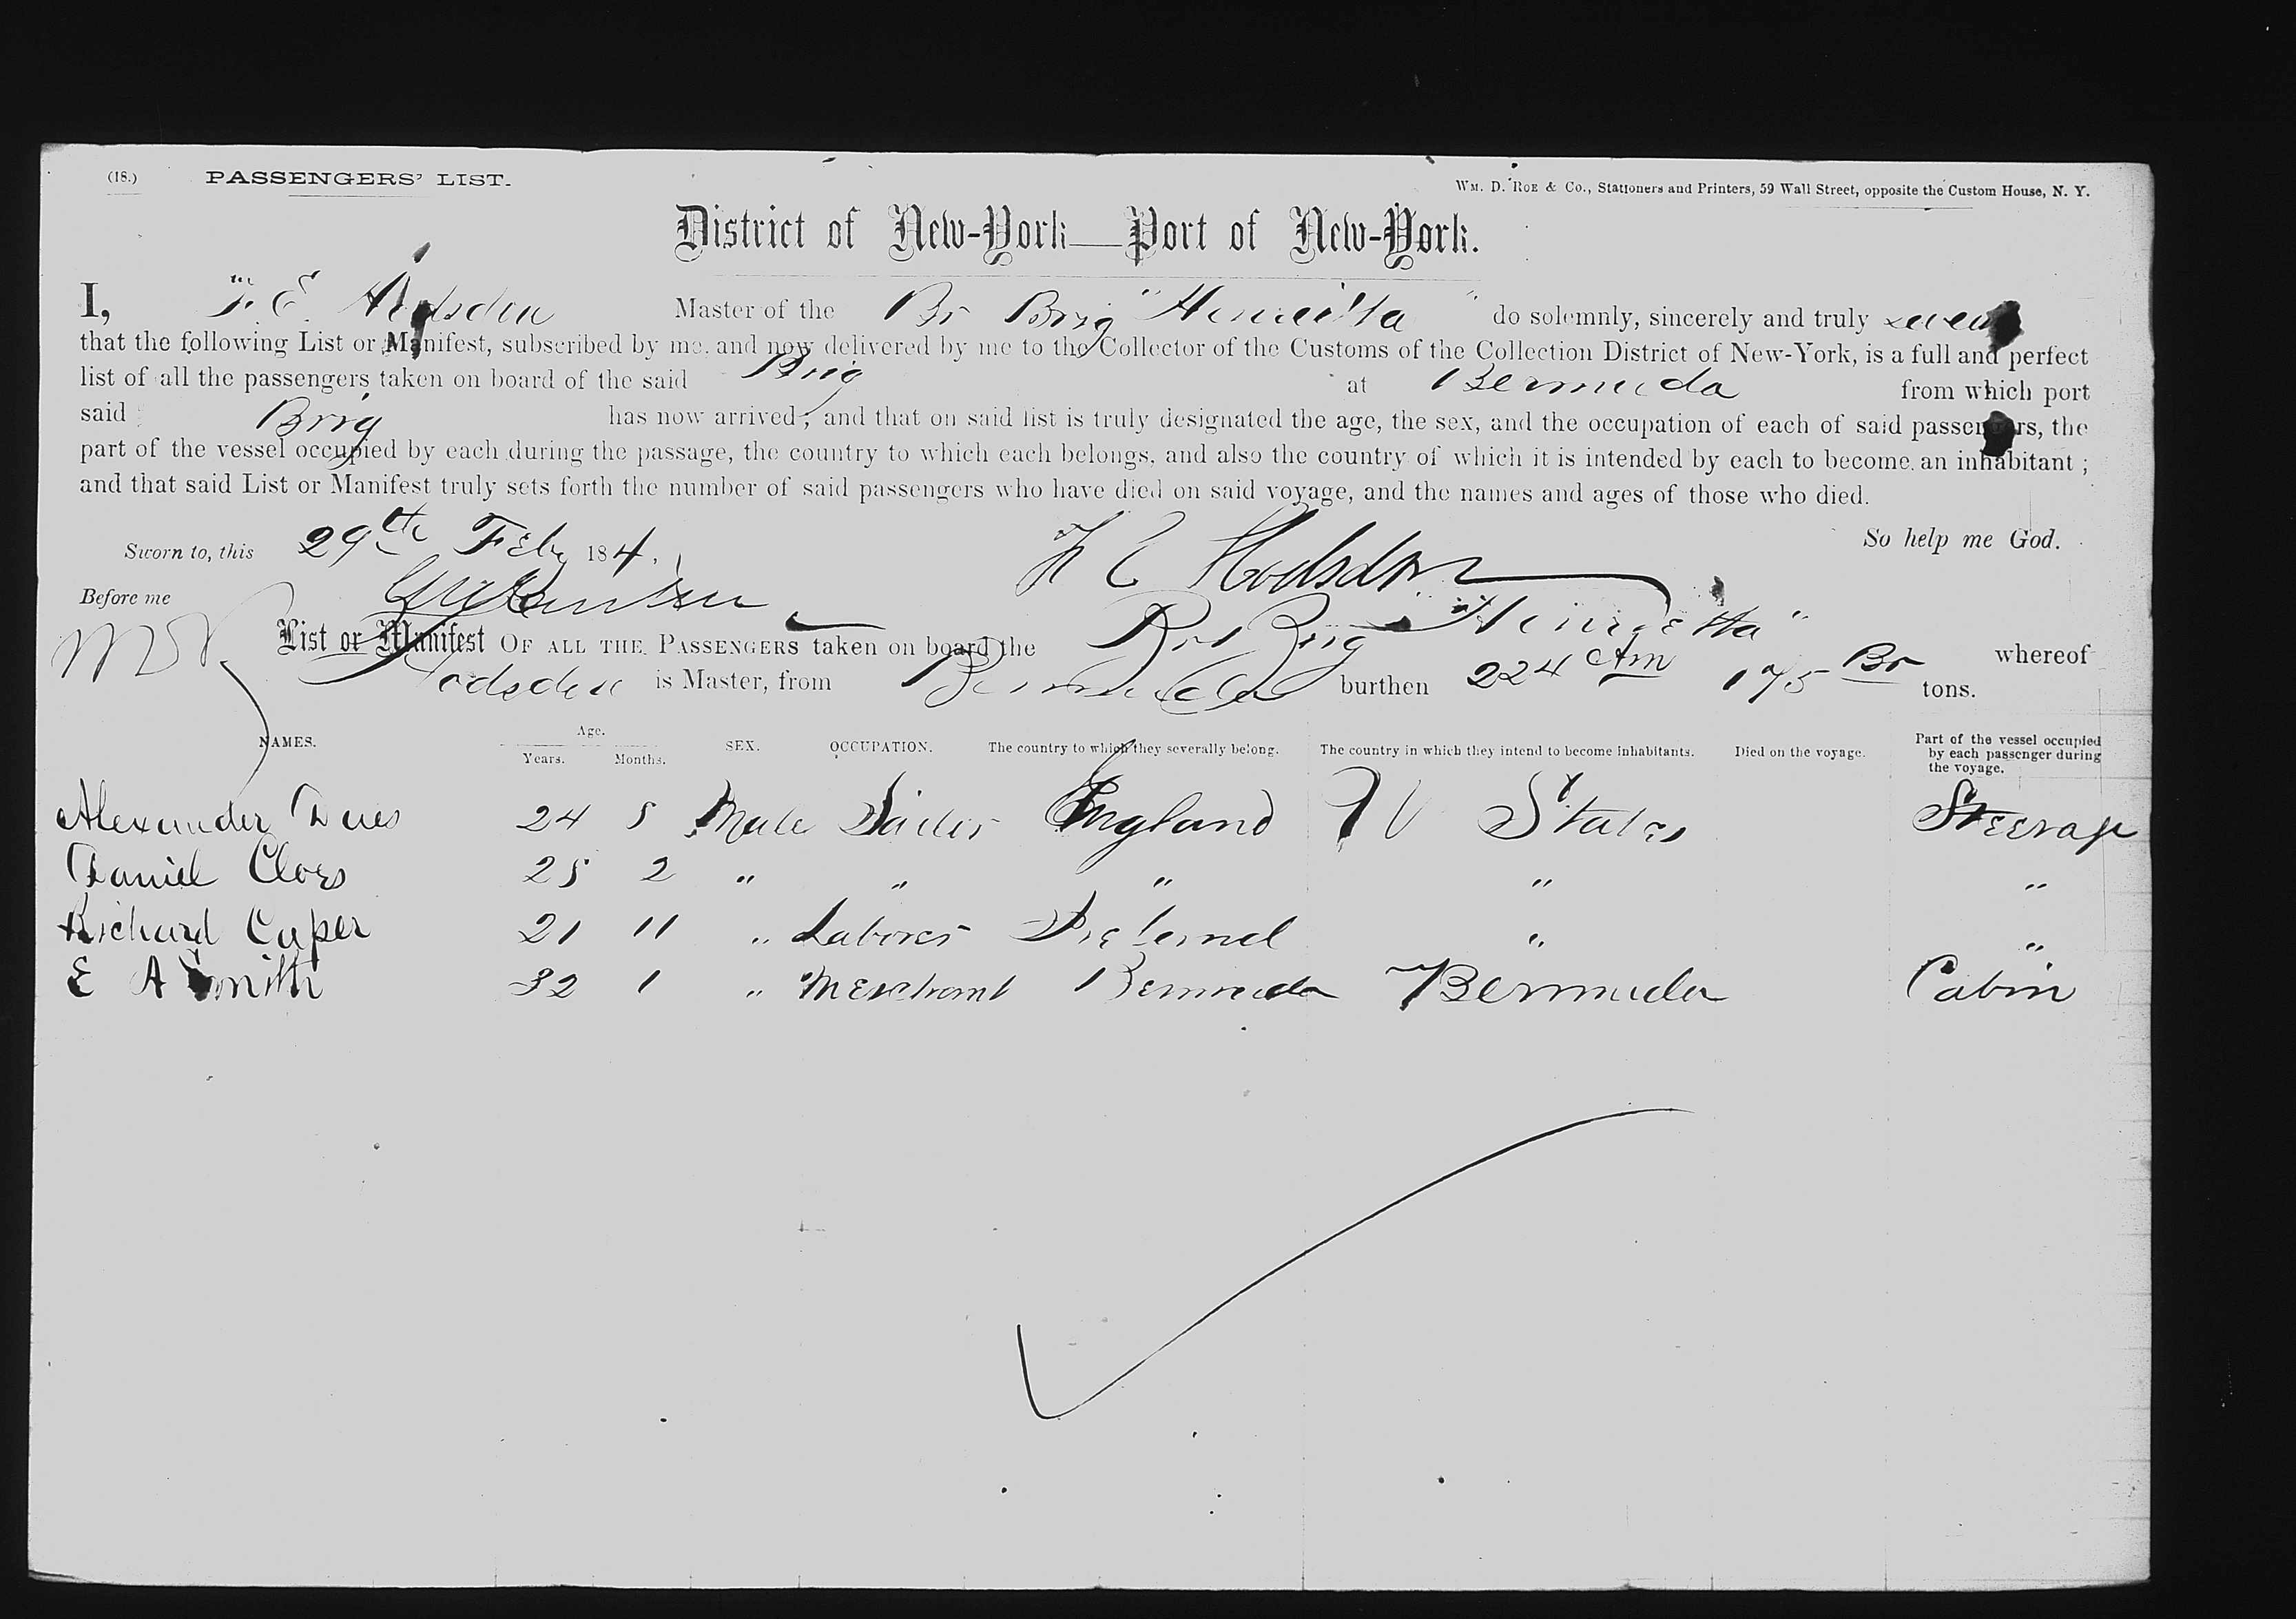 (18.) PASSENGERS' LIST. WM. D. ROE & CO., Stationers and Printers, 59 Wall Street, opposite the Custom House, N. Y.
District of New-York—Port of New-York.
I, F. E. Hodsdon Master of the Br Brig "Henrietta" do solemnly, sincerely and truly swear
that the following List or Manifest, subscribed by me, and now delivered by me to the Collector of the Customs of the Collection District of New-York, is a full and perfect
list of all the passengers taken on board of the said Brig at Bermuda from which port
said Brig has now arrived; and that on said list is truly designated the age, the sex, and the occupation of each of said passengers, the
part of the vessel occupied by each during the passage, the country to which each belongs, and also the country of which it is intended by each to become an inhabitant;
and that said List or Manifest truly sets forth the number of said passengers who have died on said voyage, and the names and ages of those who died.
So help me God.
Sworn to, this 29th Feby 184.
F E Hodsdon
Before me
List or Manifest OF ALL THE PASSENGERS taken on board the Br Brig "Henrietta" whereof
Hodsdon is Master, from Bermuda burthen 224 Am 175 Br tons.
NAMES. Age. Years. Months. SEX. OCCUPATION. The country to which they severally belong. The country in which they intend to become inhabitants. Died on the voyage. Part of the vessel occupied by each passenger during the voyage.
Alexander 24 5 Male Sailor England U States Steerage
Daniel 25 2 " " " " "
Richard Caper 21 11 " Laborer Ireland " "
E A Smith 32 1 " Merchant Bermuda Bermuda Cabin